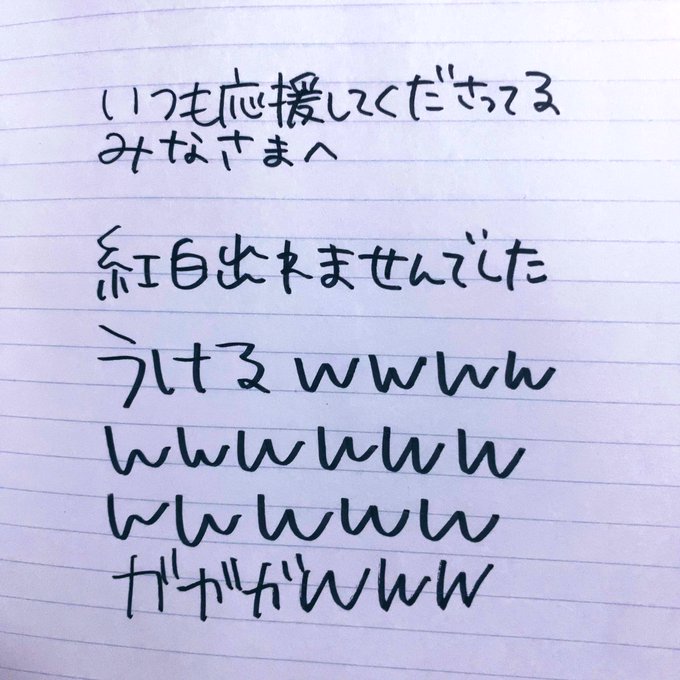 いつも応援してくださってる
みなさまへ
紅白出れませんでした
うけるwwww
wwwwww
wwwww
ガガガwww